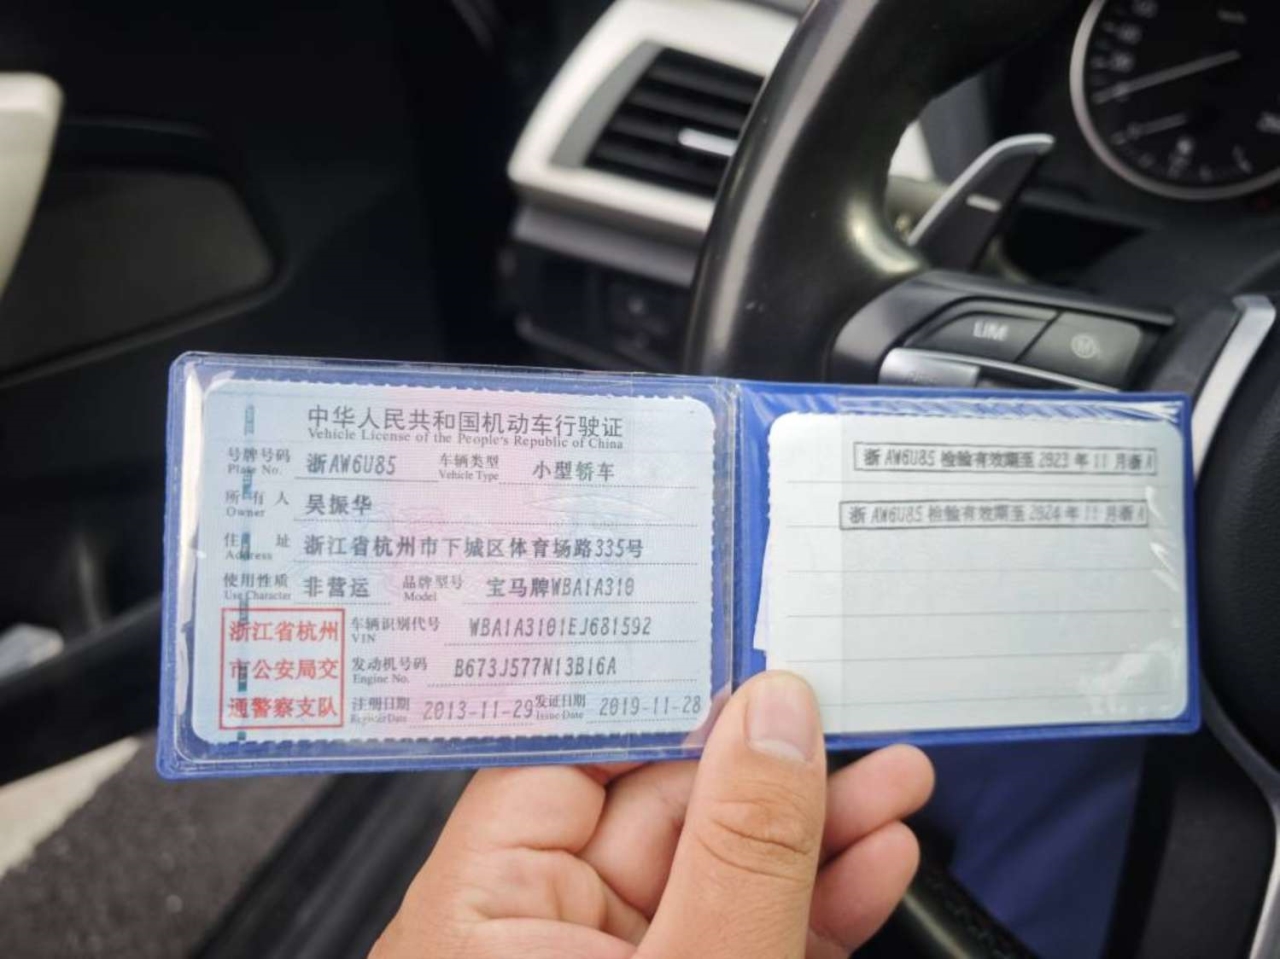 中华人民共和国机动车行驶证
Vehicle License of the People's Republic of China
号牌号码 浙AW6U85 车辆类型 小型轿车
Plate No. Vehicle Type
所有人 吴振华
Owner
住址 浙江省杭州市下城区体育场路335号
Address
使用性质 非营运 品牌型号 宝马牌WBA1A310
Use Character Model
浙江省杭州
市公安局交
通警察支队
车辆识别代号 WBA1A3101EJ681592
VIN
发动机号码 B673J577N13B16A
Engine No.
注册日期 2013-11-29 发证日期 2019-11-28
Register Date Issue Date
浙AW6U85 检验有效期至 2023 年 11 月浙A
浙AW6U85 检验有效期至 2024 年 11 月浙A
LIM